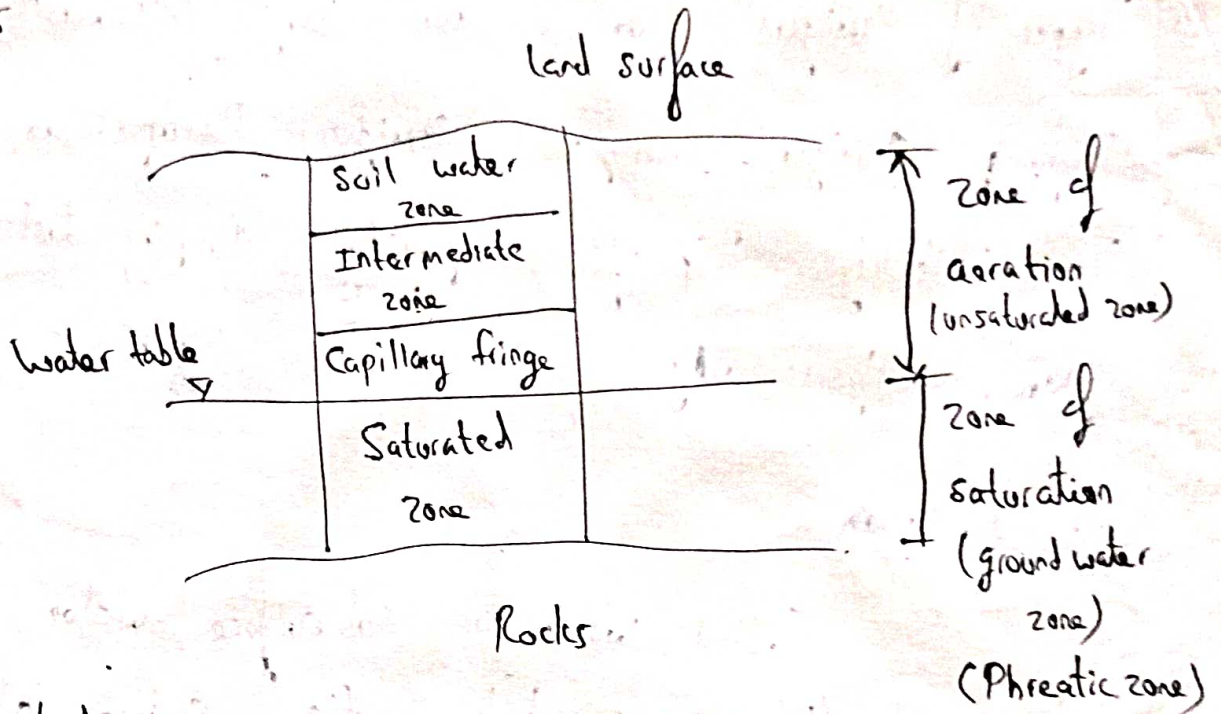 land surface
Soil water
zone
Intermediate
zone
Capillary fringe
Water table
Saturated
zone
Rocks
zone of
aeration
(unsaturated zone)
zone of
saturation
(ground water
zone)
(Phreatic zone)